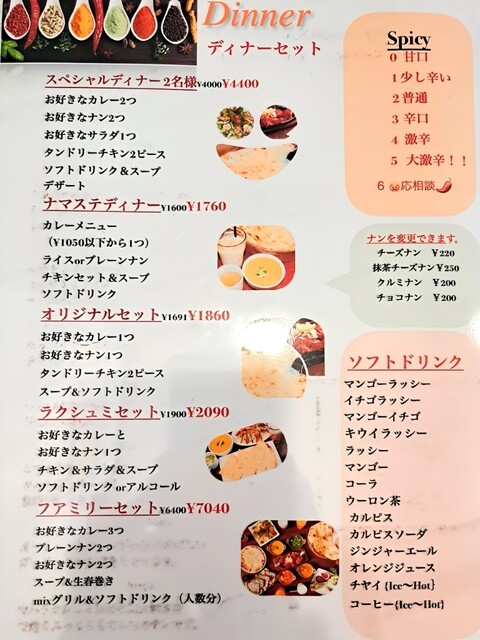 Dinner
ディナーセット
スペシャルディナー2名様¥4000¥4400
お好きなカレー2つ
お好きなナン2つ
お好きなサラダ1つ
タンドリーチキン2ピース
ソフトドリンク＆スープ
デザート
ナマステディナー¥1600¥1760
カレーメニュー
（¥1050以下から1つ）
ライスorプレーンナン
チキンセット＆スープ
ソフトドリンク
オリジナルセット¥1691¥1860
お好きなカレー1つ
お好きナン1つ
タンドリーチキン2ピース
スープ&ソフトドリンク
ラクシュミセット¥1900¥2090
お好きなカレーと
お好きなナン1つ
チキン＆サラダ＆スープ
ソフトドリンクorアルコール
ファミリーセット¥6400¥7040
お好きなカレー3つ
プレーンナン2つ
お好きなナン2つ
スープ&生春巻き
mixグリル&ソフトドリンク（人数分）
Spicy
0 甘口
1 少し辛い
2 普通
3 辛口
4 激辛
5 大激辛！！
6 応相談
ナンを変更できます。
チーズナン ¥220
抹茶チーズナン¥250
クルミナン ¥200
チョコナン ¥200
ソフトドリンク
マンゴーラッシー
イチゴラッシー
マンゴーイチゴ
キウイラッシー
ラッシー
マンゴー
コーラ
ウーロン茶
カルピス
カルピスソーダ
ジンジャーエール
オレンジジュース
チヤイ{Ice〜Hot}
コーヒー{Ice〜Hot}